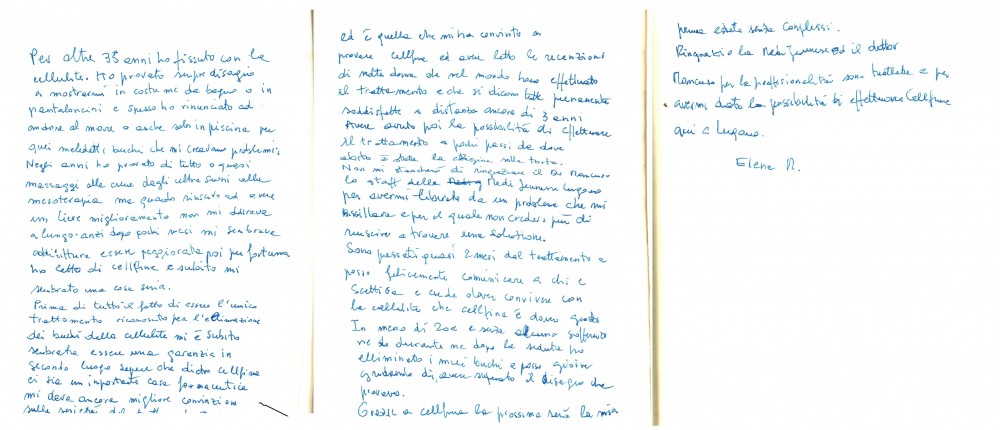 Per oltre 35 anni ho vissuto con la
cellulite. Ho provato sempre disagio
a mostrarmi in costume da bagno o in
pantaloncini e spesso ho rinunciato ad
andare al mare o anche solo in piscina per
quei maledetti buchi che mi creavano problemi.
Negli anni ho provato di tutto o quasi
massaggi alle creme dagli ultra suoni alla
mesoterapia ma quando riuscivo ad avere
un lieve miglioramento non mi durava
a lungo anzi dopo pochi mesi mi sembrava
addirittura essere peggiorata poi per fortuna
ho letto di cellfina e subito mi
sembrato una cosa seria.
Prima di tutto il fatto di essere l'unico
trattamento riconosciuto per l'eliminazione
dei buchi della cellulite mi è subito
sembrata essere una garanzia in
secondo luogo sapere che dietro cellfina
ci sia un importante casa farmaceutica
mi dava ancora migliore convinzione
sulla serietà del
ed è quella che mi ha convinto a
provare cellfina ed aver letto le recensioni
di molte donne che nel mondo hanno effettuato
il trattamento e che si dicono tutte pienamente
soddisfatte a distanza ancora di 3 anni
Avere avuto poi la possibilità di effettuare
il trattamento a pochi passi da dove
abito è stata la ciliegina sulla torta.
Non mi stancherò di ringraziare il Dr Mancuso
lo staff della Medi Jeunesse Lugano
per avermi liberata da un problema che mi
assillava e per il quale non credevo più di
riuscire a trovare una soluzione.
Sono passati quasi 2 mesi dal trattamento e
posso felicemente comunicare a chi è
scettica e crede dover convivere con
la cellulite che cellfina è davvero
In meno di 2 ore e senza alcuna sofferenza
ne durante ne dopo la seduta ho
elliminato i miei buchi e posso gioire
di avere superato il disagio che
provavo.
Grazie a cellfina la prossima sarà la mia
prima estate senza complessi.
Ringrazio la Medi Jeunesse ed il dottor
Mancuso per la professionalità sono trattata e per
avermi dato la possibilità di effettuare Cellfina
qui a Lugano.
Elena R.